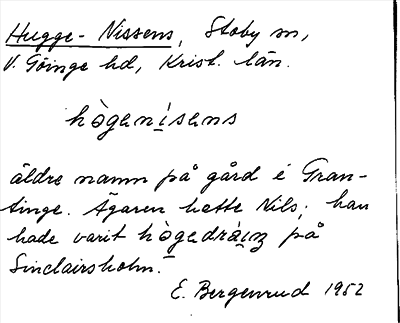 Hugge-Nissens, Stoby sn,
V. Göinge hd, Krist. län.
hògenísens
äldre namn på gård i Gran-
tinge. Ägaren hette Nils; han
hade varit hògedráɪnz på
Sinclairsholm.
E. Bergenrud 1952